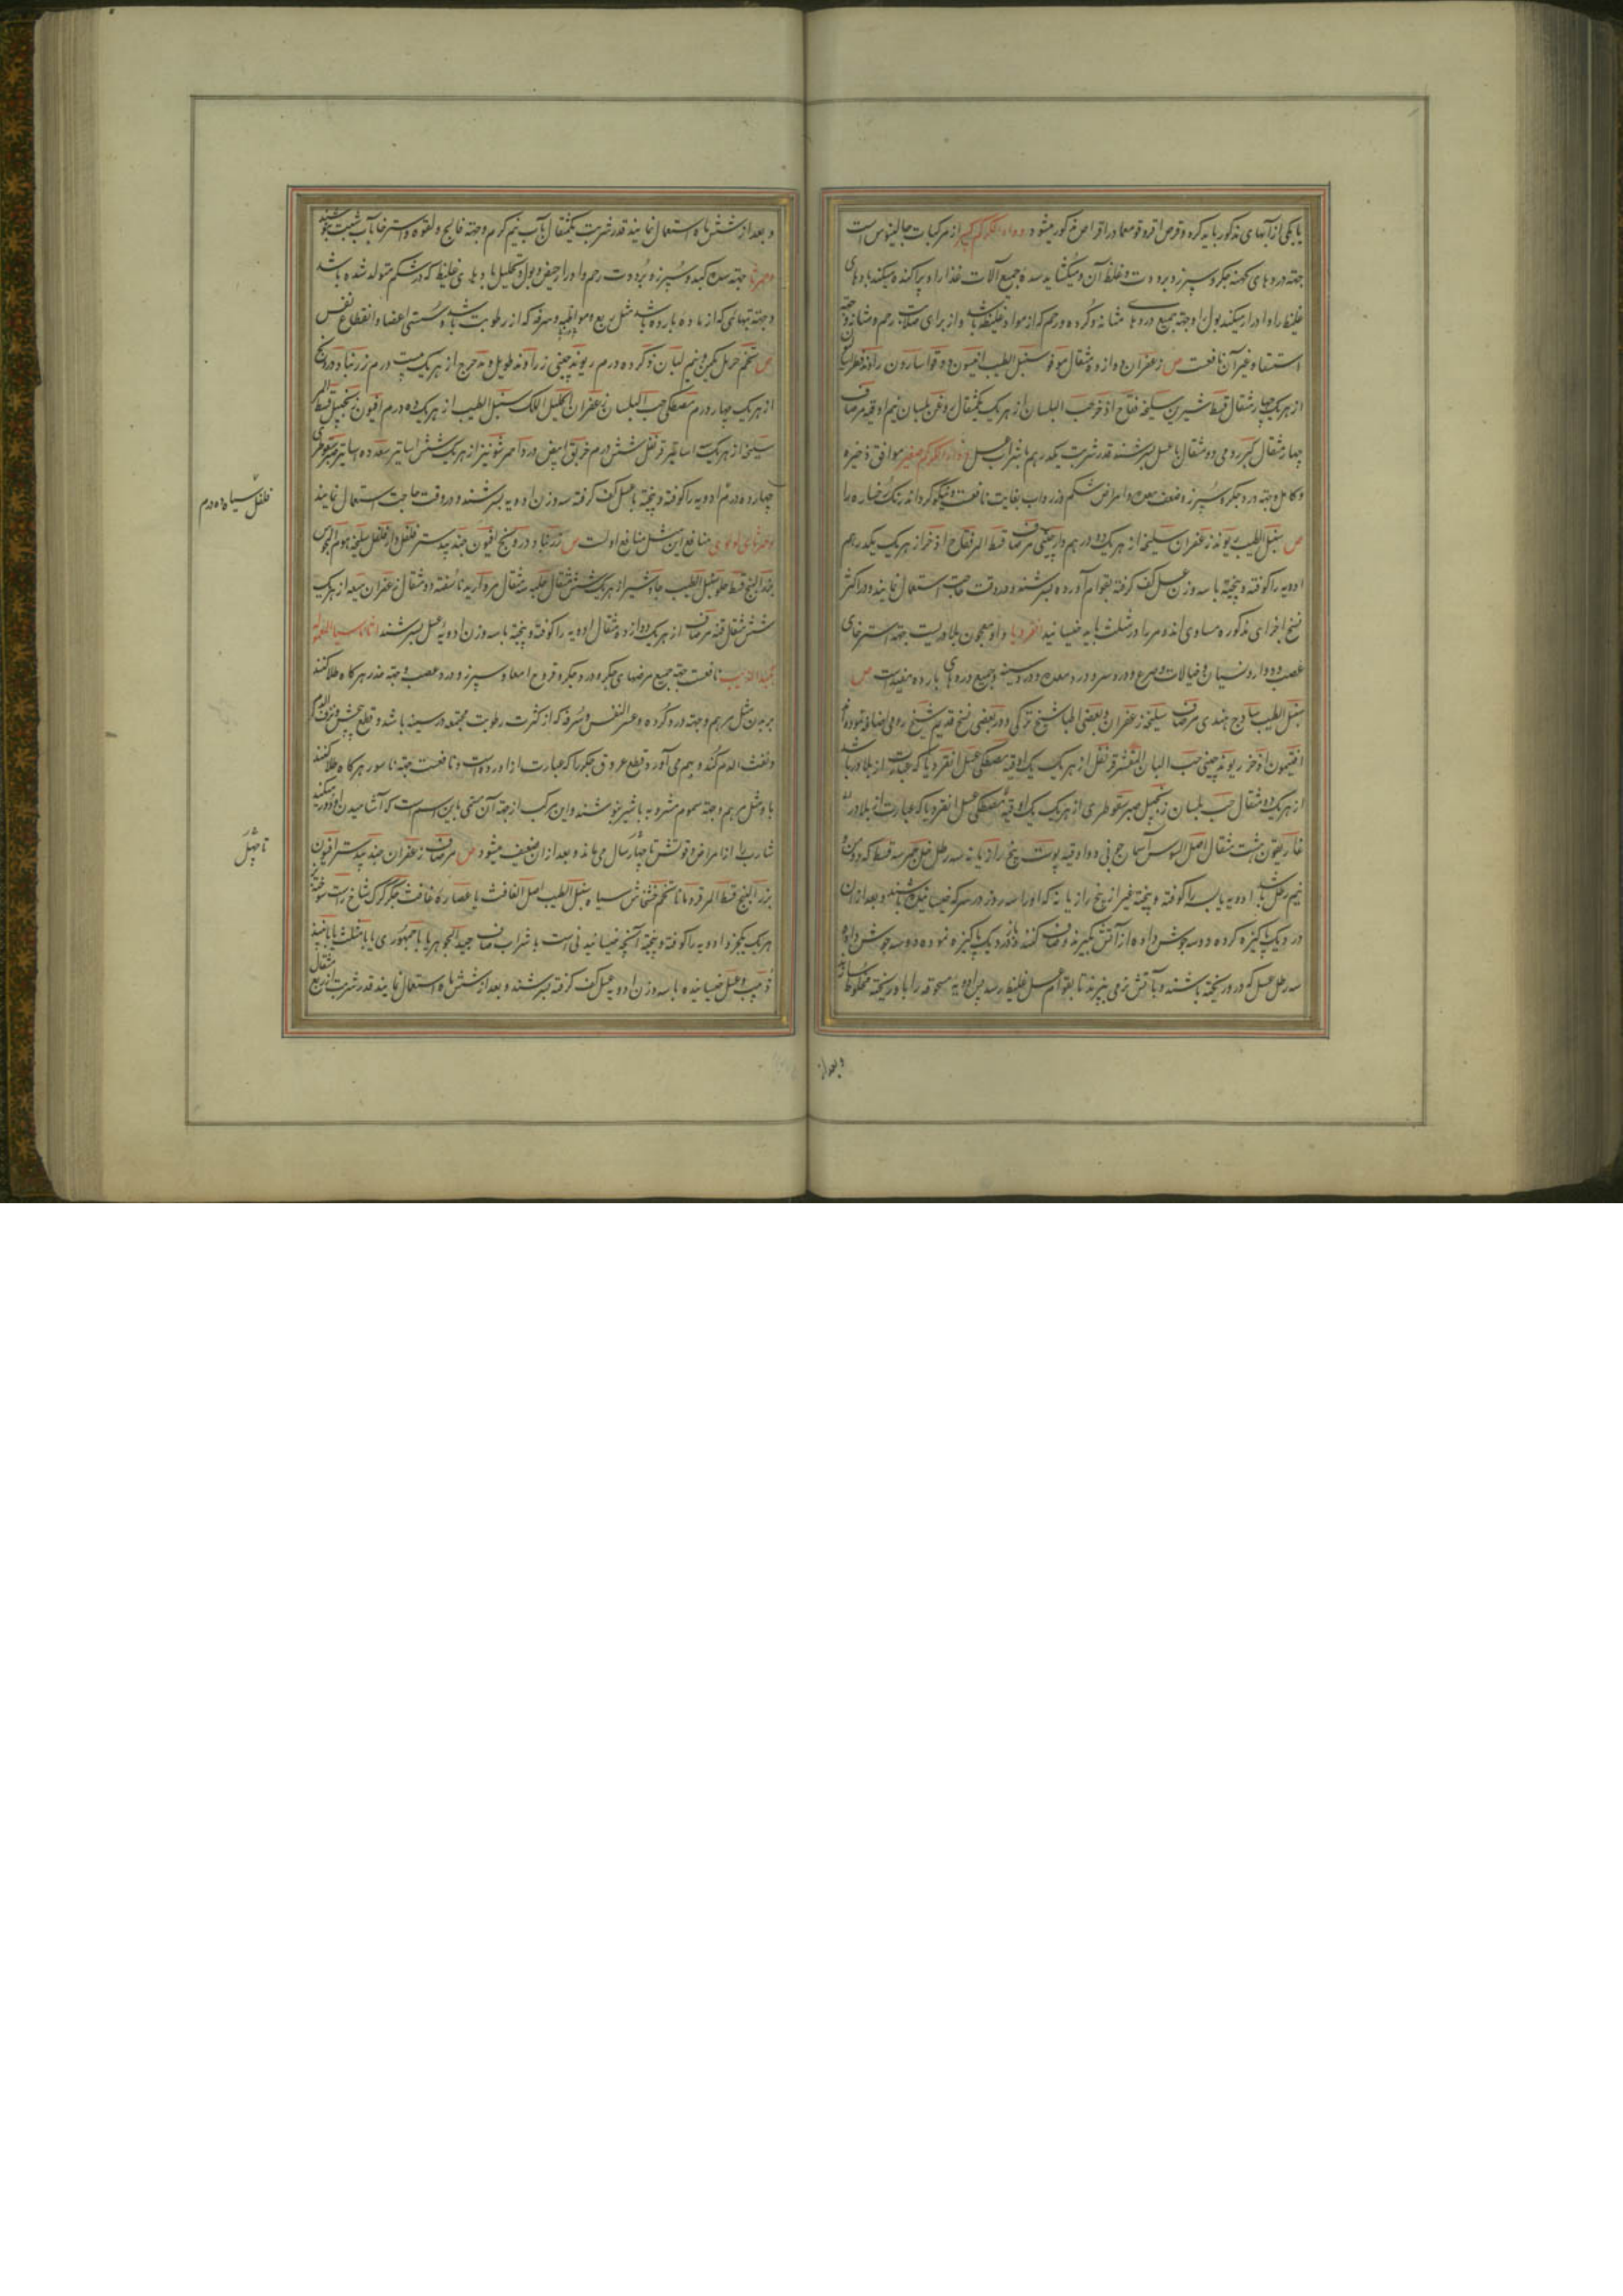 با یکی از آبهای مذکور باید کرد و قرص اقروقومعما در اقراص مذکور میشود دواء الکرکم کبیر از مرکبات جالینوس است
جهته دردهای کهنه جکر و سپرز و برودت و غلظ آن و میکشاید سده جمیع آلات غذا را و پراکنده میکند بادهای
غلیظ را و ادرار میکند بول را و جهته جمیع دردهای مثانه و کرده و رحم که از مواد غلیظه باشد و از برای صلابت رحم و مثانه و جهته
استسقا و غیر آن نافعست ص زعفران دوازده مثقال مو فو سنبل الطیب انیسون دوقو اسارون راوند فطراسالیون
از هر یک چهار مثقال قسط شیرین سلیخه فقاح اذخر حب البلسان از هر یک یکمثقال روغن بلسان نیم اوقیه مر صاف
چهار مثقال رومی ده مثقال با عسل بسرشند قدر شربت یکدرهم با شراب عسل دواء الکرکم صغیر موافق ذخیره
و کامل جهته درد جکر و سپرز و ضعف معده و امراض شکم و زرداب بغایت نافعست و نیکو کرداند رنک رخساره را
ص سنبل الطیب ریوند زعفران سلیخه از هر یک ده درهم دارچینی مر صاف قسط المر فقاح اذخر از هر یک یکدرهم
ادویه را کوفته و پخته با سه وزن عسل کف کرفته بقوام آورده بسرشند و در وقت حاجت استعمال نمایند و در اکثر
نسخ اجزای مذکوره مساوی‌اند و مر را در مثلث باید خیسانید انقردیا و او معجون بلادریست جهته استرخای
عصب و دوار و نسیان و خیالات و صرع و درد سر و درد معده و درد سینه و جمیع دردهای بارده مفیدست ص
سنبل الطیب ساذج هندی مر صاف سلیخه زعفران و بعضی اطبا شیح ترکی و در بعضی نسخ قدیم شیح رومی اضافه نموده‌اند
افتیمون اذخر ریوند چینی حب البان المقشر قرنفل از هر یک یک اوقیه مصطکی عسل انقردیا که عبارت از بلادر باشد
از هر یک ده مثقال حب بلسان زنجبیل صبر سقوطری از هر یک یک اوقیه مصطکی عسل انقردیا که عبارت از بلادر
غاریقون هشت مثقال اصل السوس آسمانجونی دو اوقیه پوست بیخ رازیانه سه رطل خل خمر سه قسط که دو من و
نیم رطل باشد ادویه یابسه را کوفته و پخته غیر از بیخ رازیانه که او را سه روز در سرکه خیسانیده باشند و بعد ازان
در دیک پاکیزه کرده و دو سه جوش داده از آتش بکیرند و صاف کنند و باز در دیک پاکیزه نموده دو سه جوش داده
سه رطل عسل که در او ریخته باشند و بآتش نرمی بپزند تا بقوام عسل غلیظ رسد پس ادویه مسحوقه را با او ریخته مخلوط سازند
و بعد از
و بعد از شش ماه استعمال نمایند قدر شربت یکمثقال بآب نیم کرم و جهته فالج و لقوه و استرخا بآب شبت بنوشند
دحمرثا جهته سده کبد و سپرز و برودت رحم و ادرار حیض و بول و تحلیل بادهای غلیظ که در شکم متولد شده باشد
و جهته تبهائی که از ماده بارده باشد مثل ربع و مواظبه و سرفه که از رطوبت باشد و سستی اعضا و انقطاع نفس
ص تخم حرمل یکمن و نیم لبان ذکر ده درم ریوند چینی زراوند طویل و مدحرج از هر یک بیست درم زرنباد درونج
از هر یک چهار درم مصطکی حب البلسان زعفران اکلیل الملک سنبل الطیب از هر یک ده درم افیون زنجبیل قسط المر
سلیخه از هر یک استاتیر قرنفل شش درم خربق ابیض درد احمر شونیز از هر یک شش اساتیر سعد ده اساتیر صبر سقوطری
چهارده درم ادویه را کوفته و پخته با عسل کف کرفته سه وزن ادویه بسرشند و در وقت حاجت استعمال نمایند
فلفل سیاه ده درم
منافع این مثل منافع اولست ص زرنباد و درونج افیون جندبیدستر فلفل دارفلفل سلیخه هوم المجوس
بزر البنج قسط حلو سنبل الطیب جاوشیر از هر یک شش مثقال حلبه سه مثقال مروارید ناسفته دو مثقال زعفران میعه از هر یک
شش مثقال قنه مر صاف از هر یک دوازده مثقال ادویه را کوفته و پخته با سه وزن ادویه عسل بسرشند اثاناسیا
بکبد الذیب نافعست جهته جمیع مرضهای جکر و درد جکر و قروح امعا و سپرز و درد عصب و جهته خدر هرکاه طلا کنند
بر بدن مثل مرهم و جهته درد کرده و عسر النفس و سرفه که از کثرت رطوبت مجتمعه در سینه باشد و قطع حیض و نزف الدم
و نفث الدم کند و بهم می آورد قطع عروق جکر را که عبارت از او رده است و نافعست جهته ناسور هرکاه طلا کنند
باو مثل مرهم و جهته سموم مشروبه با شیر بنوشند و این مرکب از جهته آن مسمی باین اسم است که آشامیدن او دور میکند
شارب را از امراض و قوتش تا چهار سال می‌ماند و بعد ازان ضعیف میشود ص مر صاف زعفران جندبیدستر افیون
تا چهل
بزر البنج قسط المر قردمانا تخم خشخاش سیاه سنبل الطیب اصل الغافث یا عصاره غافث جکر کرک شاخ راست بز سوخته
هر یک یکجزو ادویه را کوفته و پخته آنچه خیسانیدنی است با شراب صاف جید الجوهر یا با جمهوری یا با مثلث یا با نبیذ
زبیب و عسل خیسانیده با سه وزن ادویه عسل کف کرفته بسرشند و بعد از شش ماه استعمال نمایند قدر شربت از ربع مثقال